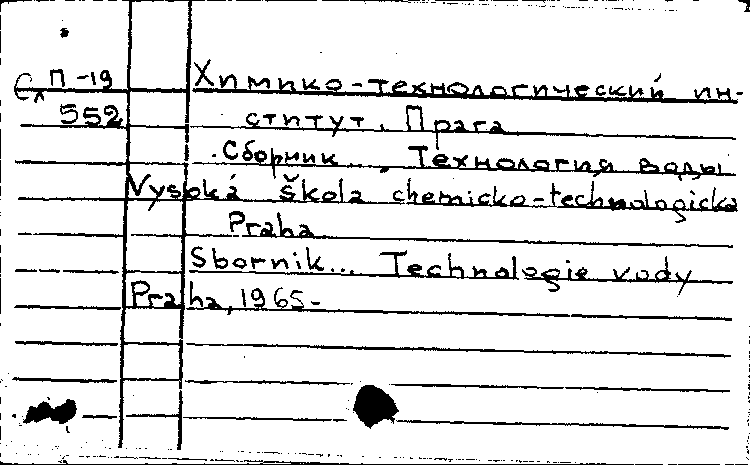 Сл П-19
552
Химико-технологический ин-
ститут. Прага
Сборник... Технология воды
Vysoká škola chemicko-technologická
Praha
Sborník... Technologie vody
Praha, 1965-